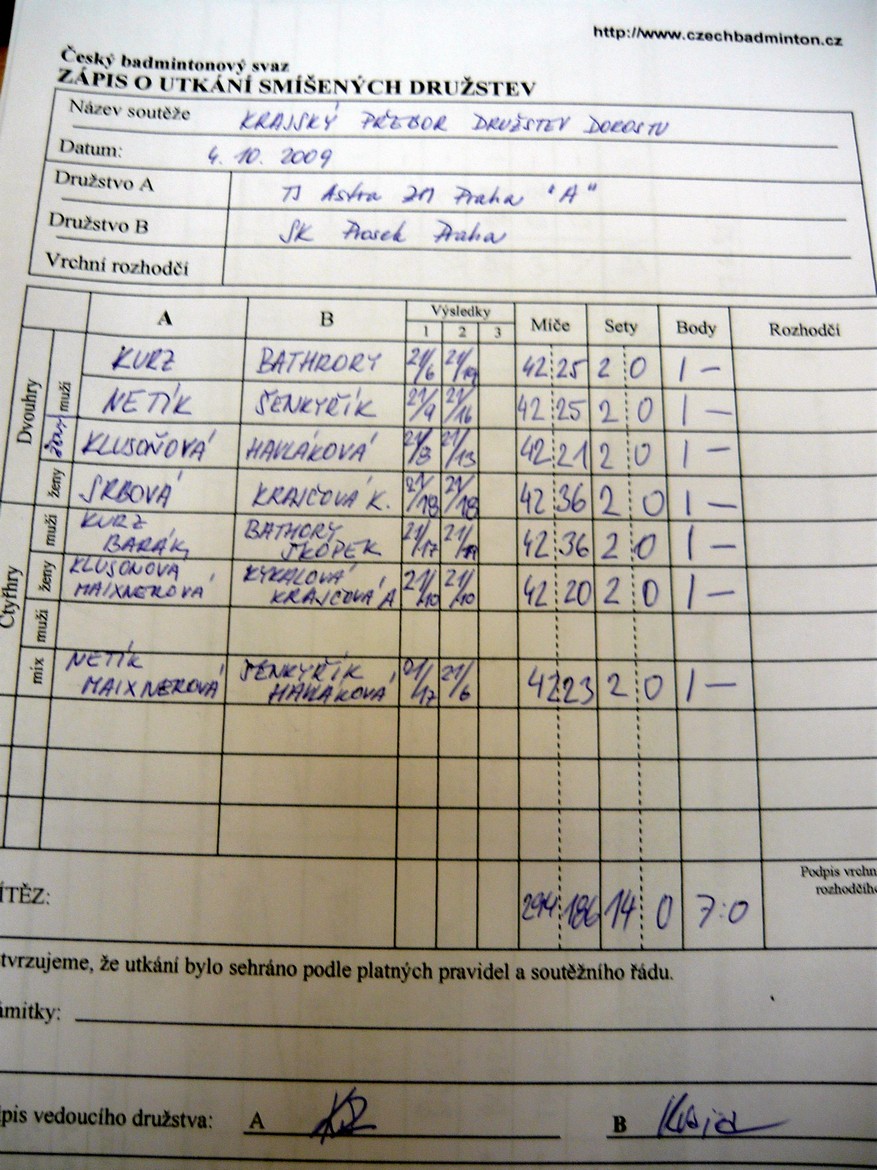 http://www.czechbadminton.cz
Český badmintonový svaz
ZÁPIS O UTKÁNÍ SMÍŠENÝCH DRUŽSTEV
Název soutěže KRAJSKÝ PŘEBOR DRUŽSTEV DOROSTU
Datum: 4. 10. 2009
Družstvo A TJ Astra ZM Praha "A"
Družstvo B SK Prosek Praha
Vrchní rozhodčí
A B Výsledky Míče Sety Body Rozhodčí
1 2 3
Dvouhry
muži KURZ BATHRORY 21/6 21/19 42 25 2 0 1 –
NETÍK ŠENKYŘÍK 21/9 21/16 42 25 2 0 1 –
KLUSOŇOVÁ HAVLÁKOVÁ 21/8 21/13 42 21 2 0 1 –
ženy SRBOVÁ KRAJCOVÁ K. 21/18 21/18 42 36 2 0 1 –
Čtyřhry
muži KURZ BARÁK BATHORY SKOPEK 21/17 21/19 42 36 2 0 1 –
ženy KLUSOŇOVÁ MAIXNEROVÁ KYKALOVÁ KRAJCOVÁ A 21/10 21/10 42 20 2 0 1 –
muži
mix NETÍK MAIXNEROVÁ ŠENKYŘÍK HAVLÁKOVÁ 21/17 21/6 42 23 2 0 1 –
ÍTĚZ: 294 186 14 0 7:0
Podpis vrchn
rozhodčího
tvrzujeme, že utkání bylo sehráno podle platných pravidel a soutěžního řádu.
ámitky:
pis vedoucího družstva: A B